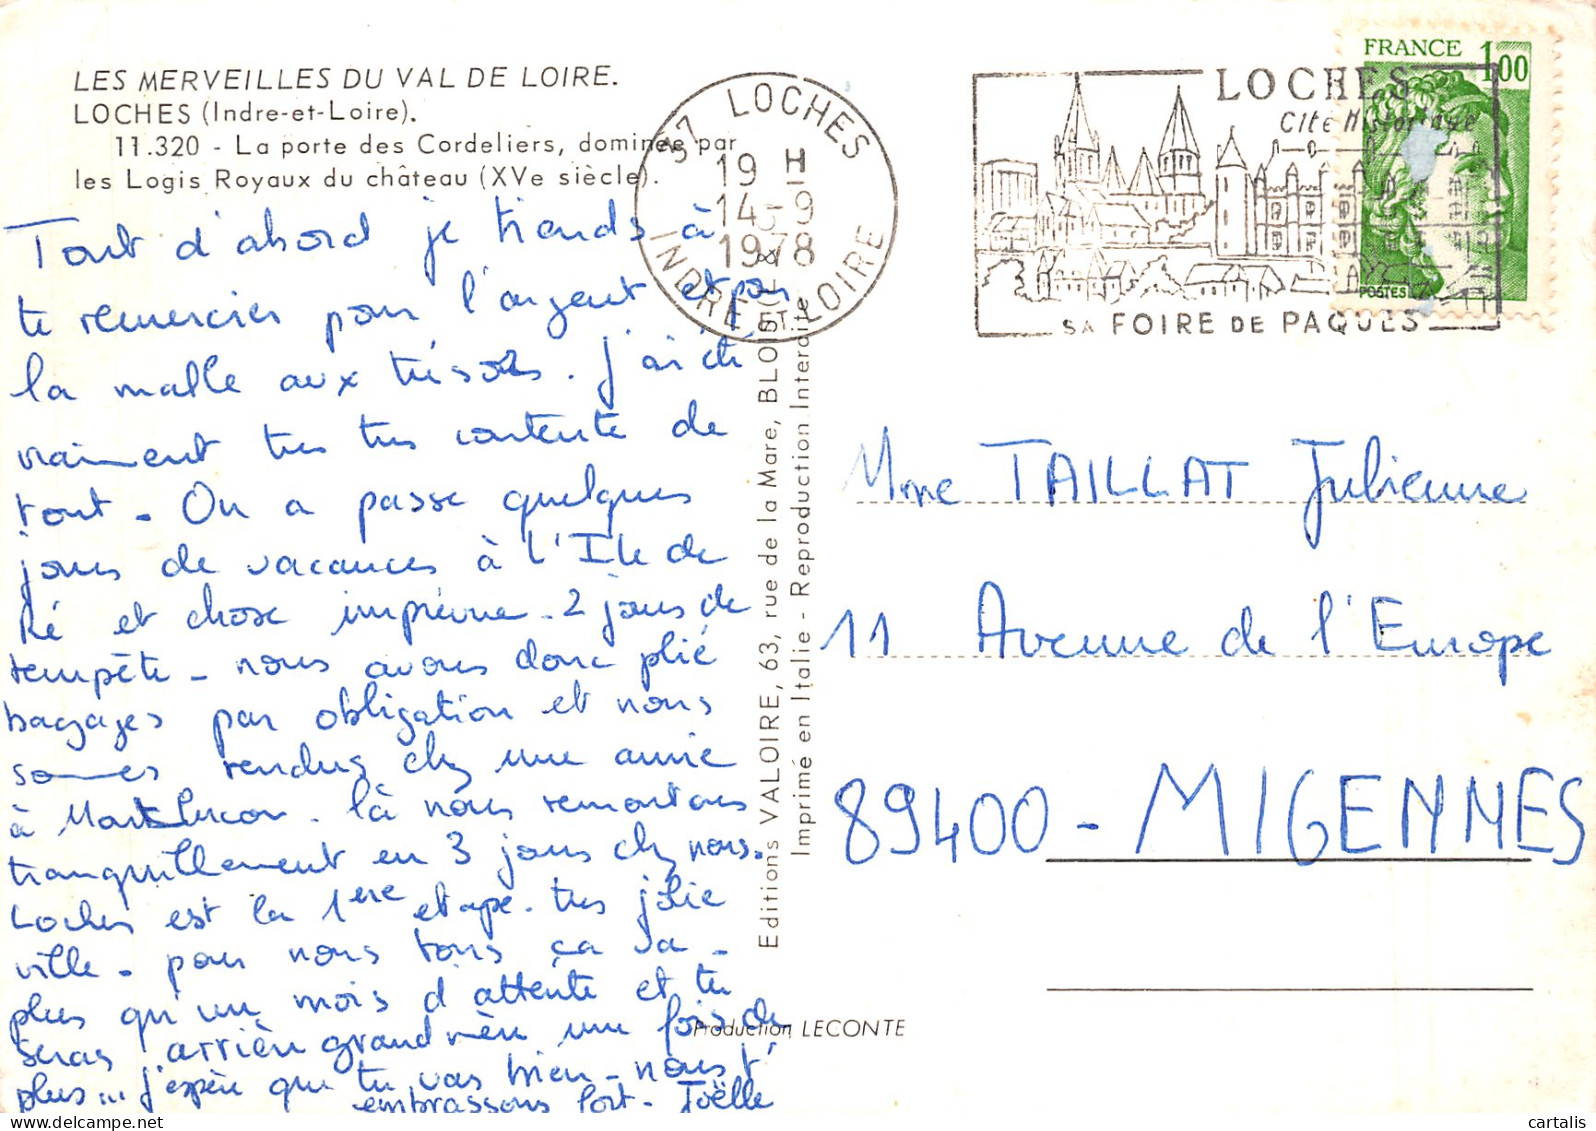 LES MERVEILLES DU VAL DE LOIRE.
LOCHES (Indre-et-Loire).
11.320 - La porte des Cordeliers, dominée par
les Logis Royaux du château (XVe siècle).
Tout d'abord je tiends à
te remercier pour l'argent et pour
la malle aux trésors. J'ai été
vraiment très très contente de
tout - On a passe quelques
jours de vacances à l'Ile de
Ré et chose imprévue - 2 jours de
tempête - nous avons donc plié
bagages par obligation et nous
sommes rendus chez une amie
à Montlucon. là nous remontons
tranquillement en 3 jours chez nous.
Loches est la 1ère etape. très jolie
ville - pour nous tous ça va -
plus qu'un mois d'attente et tu
seras arrière grand mère une fois de
plus... j'espère que tu vas bien - nous t'
embrassons fort - Joëlle
37 LOCHES
19 H
14-9
1978
INDRE ET LOIRE
LOCHES
Cité Historique
SA FOIRE DE PAQUES
FRANCE 1,00
POSTES
Editions VALOIRE, 63, rue de la Mare, BLOIS
Imprimé en Italie - Reproduction Interdite
Mme TAILLAT Julienne
11 Avenue de l'Europe
89400 - MIGENNES
Production LECONTE
cartalis